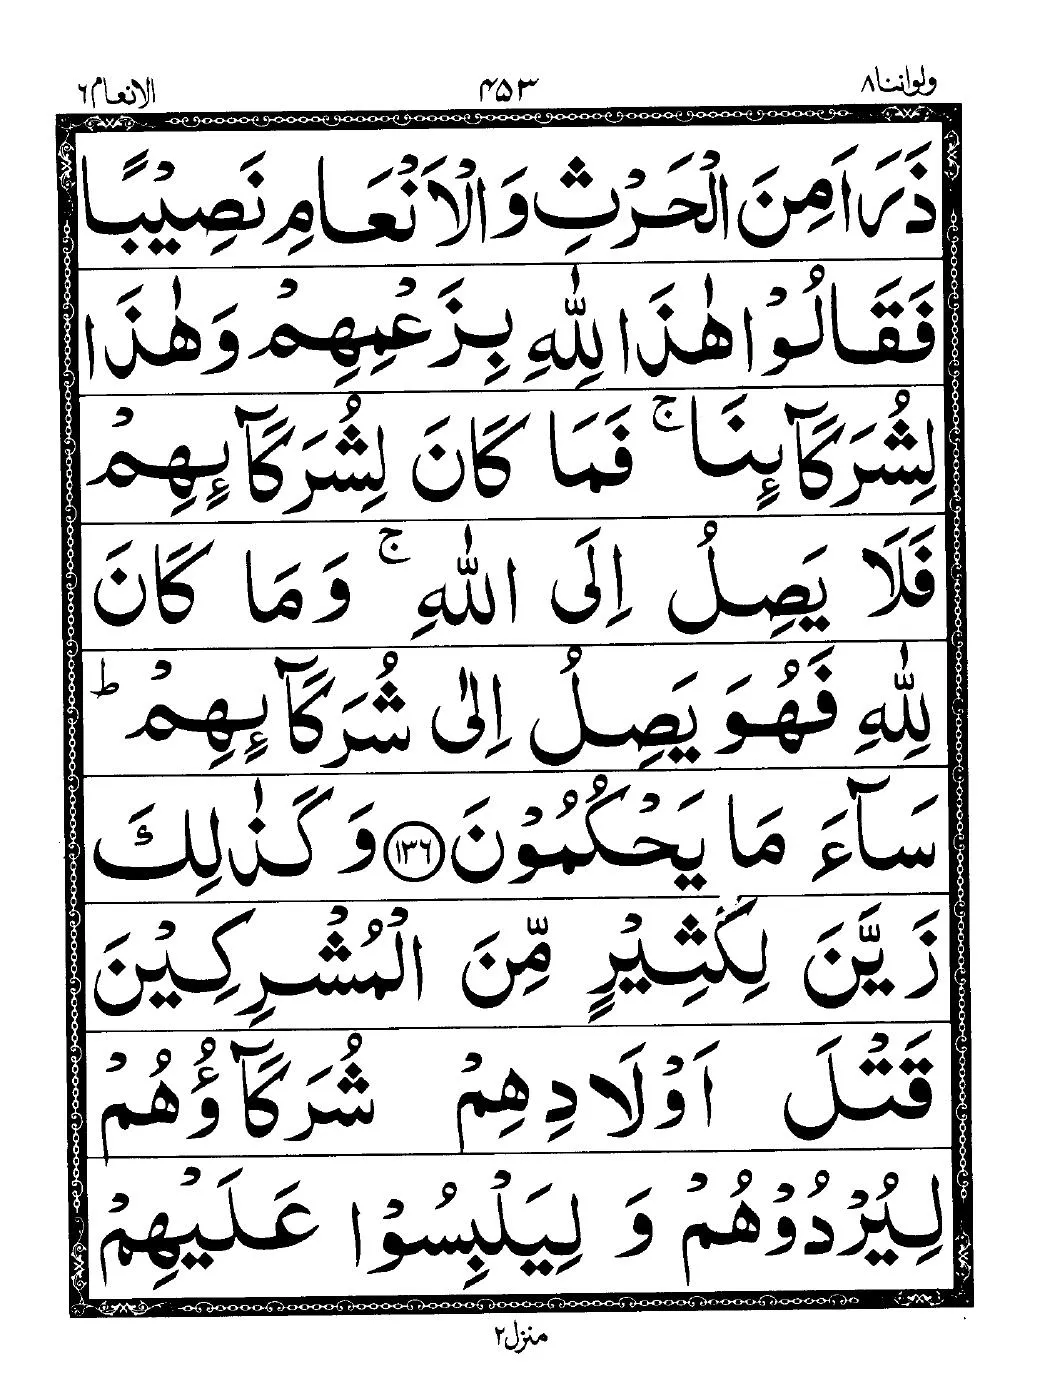 ولواننا ٨
٤٥٣
الانعام ٦
ذَرَاَ مِنَ الْحَرْثِ وَ الْاَنْعَامِ نَصِيْبًا
فَقَالُوْا هٰذَا لِلّٰهِ بِزَعْمِهِمْ وَ هٰذَا
لِشُرَكَآئِنَا ۚ فَمَا كَانَ لِشُرَكَآئِهِمْ
فَلَا يَصِلُ اِلَى اللّٰهِ ۚ وَ مَا كَانَ
لِلّٰهِ فَهُوَ يَصِلُ اِلٰى شُرَكَآئِهِمْ ؕ
سَآءَ مَا يَحْكُمُوْنَ ﴿١٣٦﴾ وَ كَذٰلِكَ
زَيَّنَ لِكَثِيْرٍ مِّنَ الْمُشْرِكِيْنَ
قَتْلَ اَوْلَادِهِمْ شُرَكَآؤُهُمْ
لِيُرْدُوْهُمْ وَ لِيَلْبِسُوْا عَلَيْهِمْ
منزل ٢